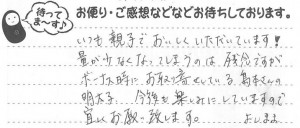 待ってま〜す♪
お便り・ご感想などなどお待ちしております。
いつも親子でおいしくいただいています!!
量が少なくなってしまうのは残念ですが
ボーナス時にお取り寄せしている島本さんの
明太子、今後も楽しみにしていますので
宜しくお願い致します。